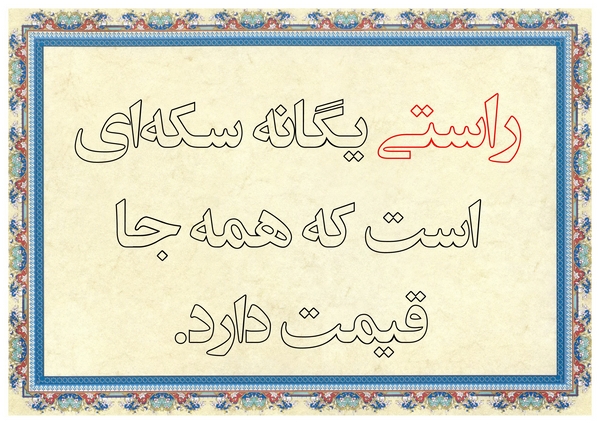 راستی یگانه سکه‌ای
است که همه جا
قیمت دارد.